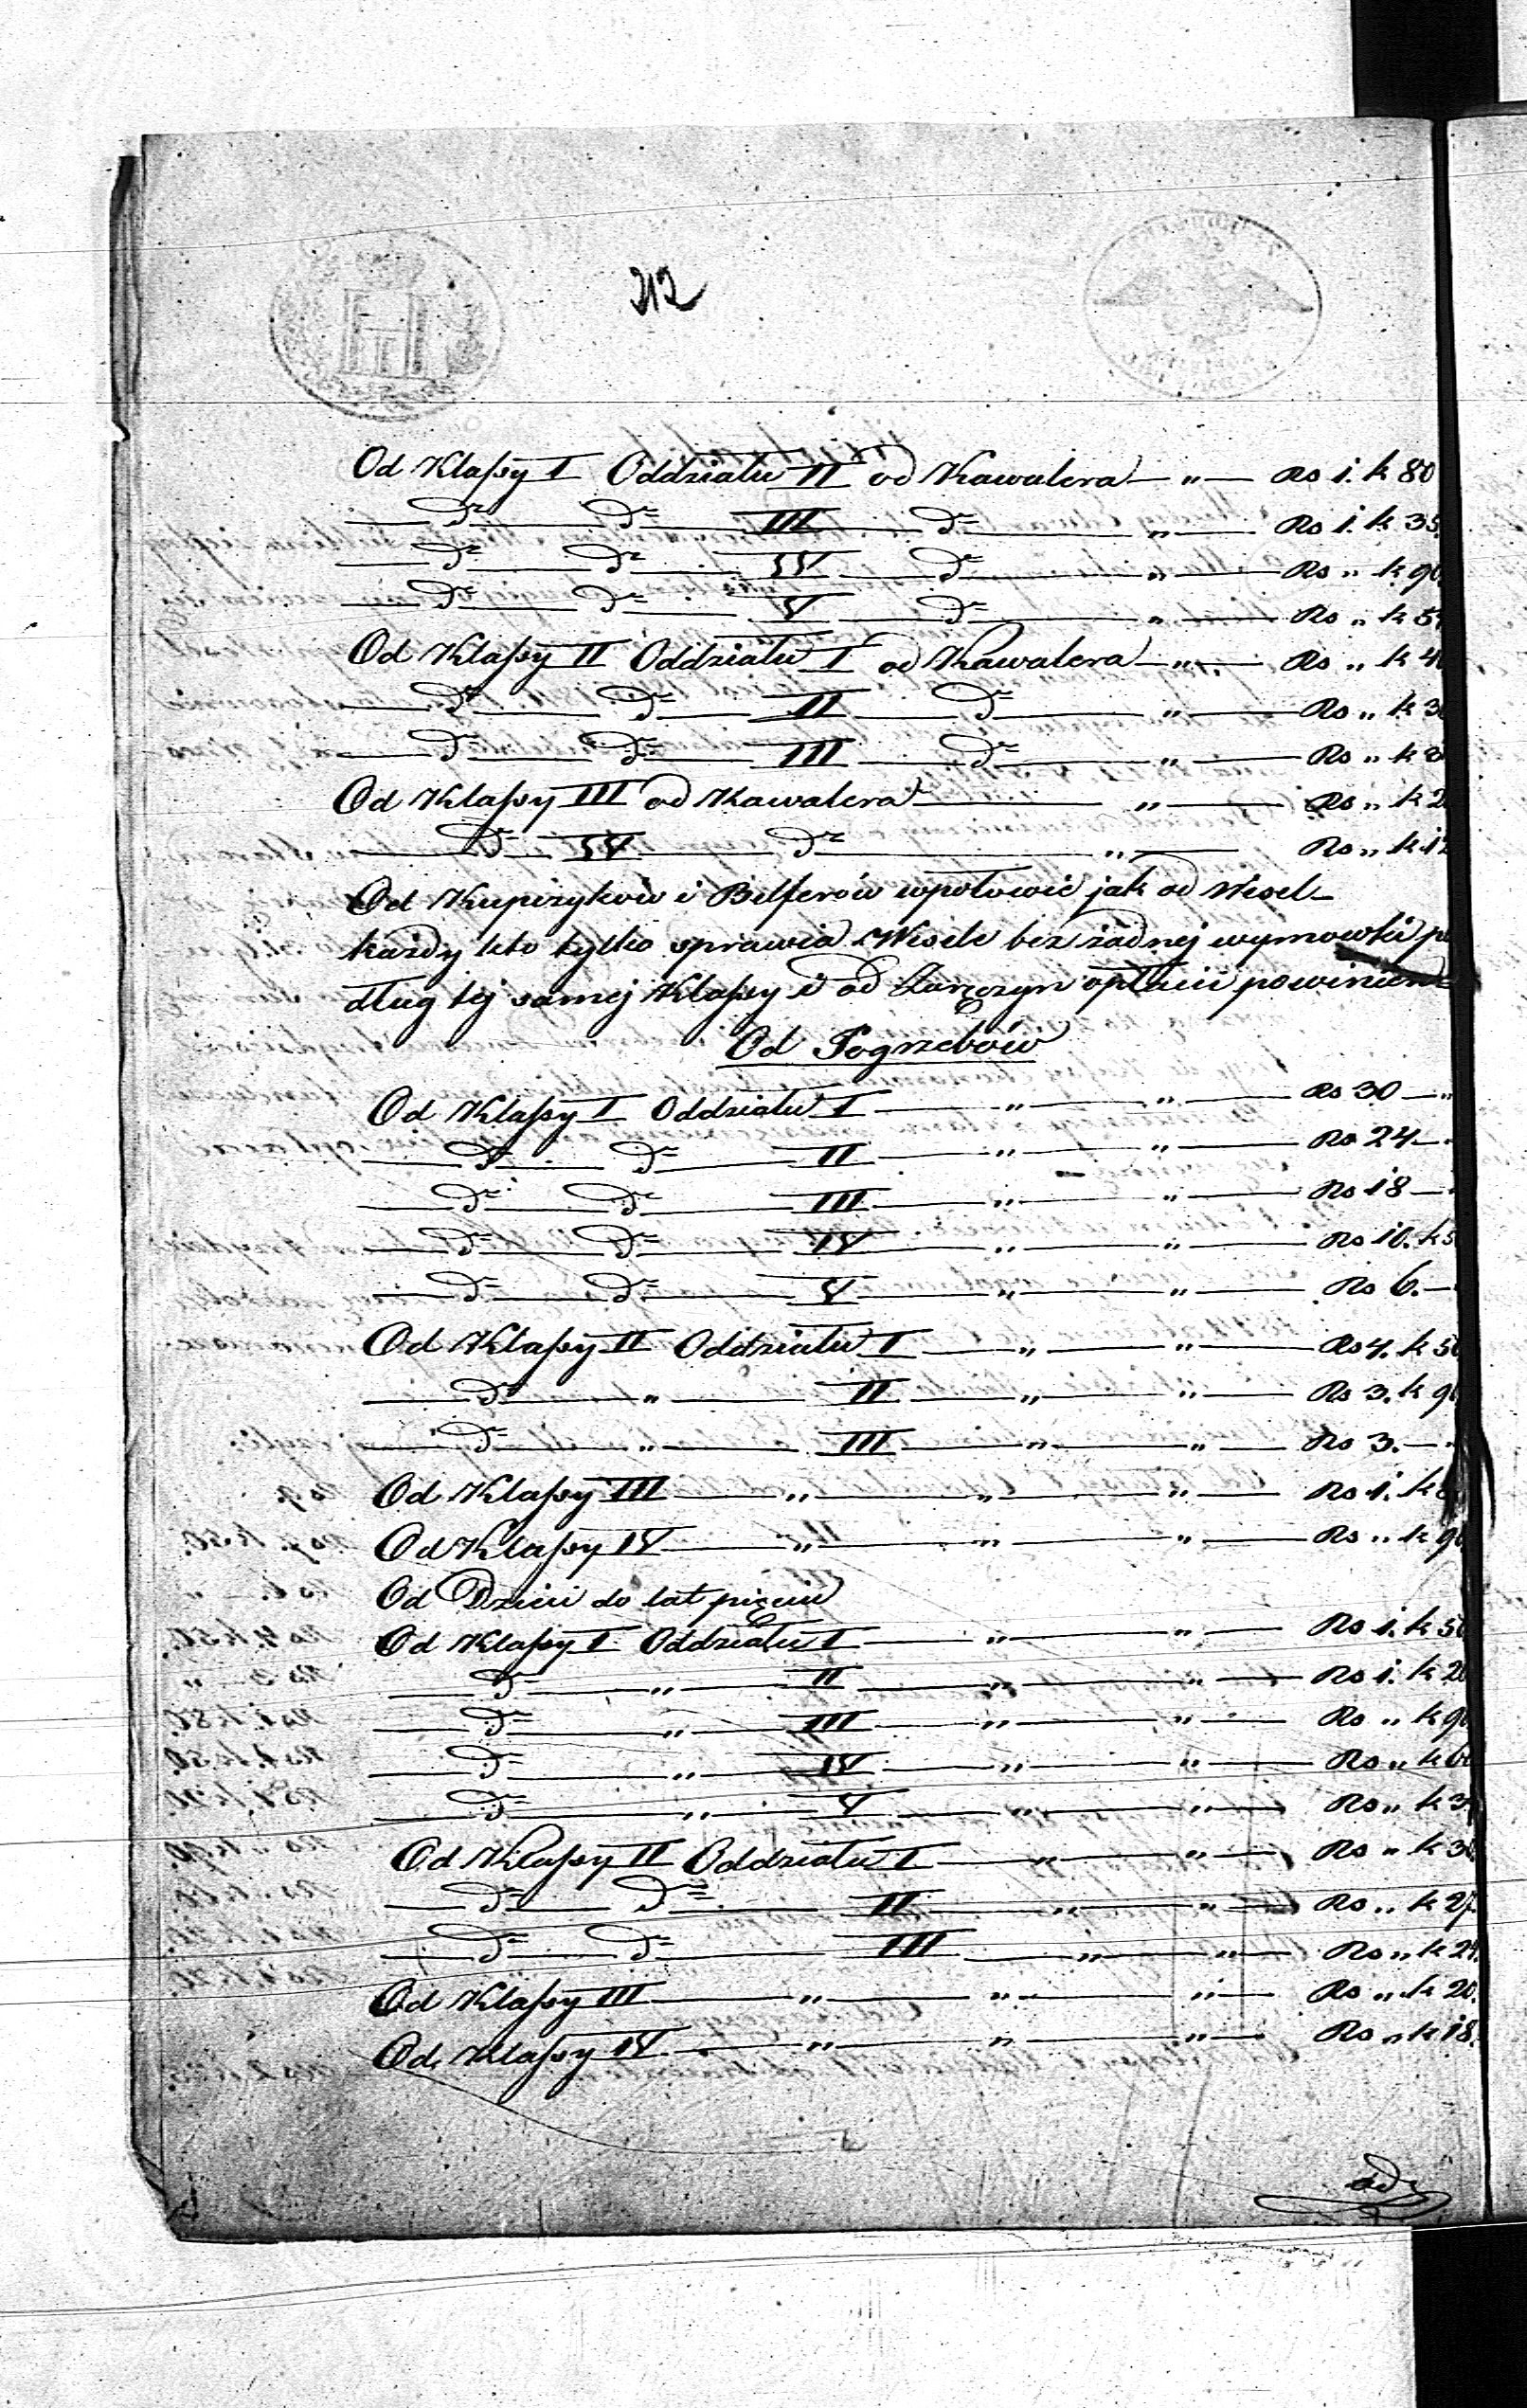 212
Od Klassy I Oddziału II od Kawalera — „ — Rs 1. k 80
— dto — dto — III — dto — „ — Rs 1. k 35
— dto — dto — IV — dto — „ — Rs „ k 90
— dto — dto — V — dto — „ — Rs „ k
Od Klassy II Oddziału I od Kawalera — „ — Rs „ k
— dto — dto — II — dto — „ — Rs „ k
— dto — dto — III — dto — „ — Rs „ k
Od Klassy III od Kawalera — „ — Rs „ k
— dto — IV — dto — „ — Rs „ k
Od Kupczyków i Belferów wpołowie jak od Wesel —
każdy kto tylko sprawia Wesele bez żadnej wymowki po
dług tej samej Klassy i od Zaręczyn opłacić powinien
Od Pogrzebów
Od Klassy I Oddziału I — „ — „ — Rs 30 — „
— dto — dto — II — „ — „ — Rs 24 —
— dto — dto — III — „ — „ — Rs 18 —
— dto — dto — IV — „ — „ — Rs 10. k
— dto — dto — V — „ — „ — Rs 6. —
Od Klassy II Oddziału I — „ — „ — Rs 4. k 50
— dto — „ — II — „ — „ — Rs 3. k 90
— dto — „ — III — „ — „ — Rs 3. —
Od Klassy III — „ — „ — „ — Rs 1. k
Od Klassy IV — „ — „ — „ — Rs „ k 90
Od Dzieci do lat pięciu
Od Klassy I Oddziału I — „ — „ — Rs 1. k 50
— dto — „ — II — „ — „ — Rs 1. k 20
— dto — „ — III — „ — „ — Rs „ k 90
— dto — „ — IV — „ — „ — Rs „ k 60
— dto — „ — V — „ — „ — Rs „ k
Od Klassy II Oddziału I — „ — „ — Rs „ k 30
— dto — dto — II — „ — „ — Rs „ k 27
— dto — dto — III — „ — „ — Rs „ k 24.
Od Klassy III — „ — „ — „ — Rs „ k 20.
Od Klassy IV — „ — „ — „ — Rs „ k 18.